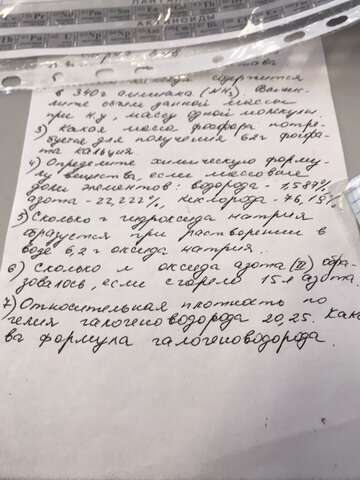 АКТИНОИДЫ
содержится
в 340 г аммиака (NH₃). Вычис-
лите объём данной массы
при н.у., массу одной молекулы
3) Какая масса фосфора потре-
буется для получения 62 г фосфа-
та кальция
4) Определите химическую форму-
лу вещества, если массовые
доли элементов: водорода - 1,589%,
азота - 22,222%, кислорода - 76,19%
5) Сколько г гидроксида натрия
образуется при растворении в
воде 6,2 г оксида натрия.
6) Сколько л оксида азота (II) обра-
зовалось, если сгорело 15 л азота.
7) Относительная плотность по
гелия галогеноводорода 20,25. Како-
ва формула галогеноводорода.